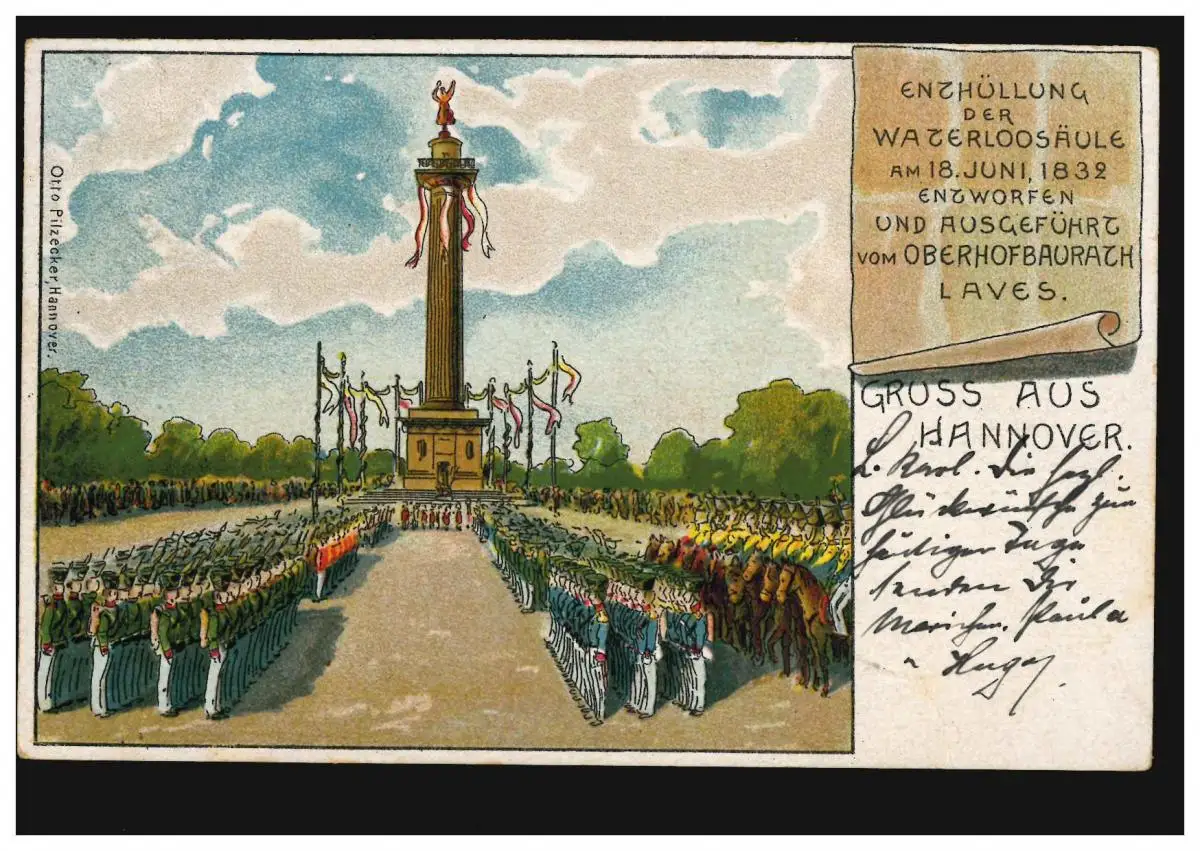 ENTHÜLLUNG
DER
WATERLOOSÄULE
AM 18. JUNI, 1832
ENTWORFEN
UND AUSGEFÜHRT
VOM OBERHOFBAURATH
LAVES.
GRUSS AUS
HANNOVER.
L. Karl. Die herzl.
Glückwünsche zum
heutigen Tage
senden Dir
Mariechen, Paula
Hugo
Otto Pilzecker, Hannover.